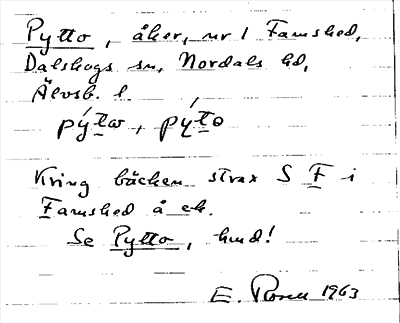 Pytto, åker, nr 1 Famshed,
Dalskogs sn, Nordals hd,
Älvsb. l.
pýtω, pỳto
Kring bäcken strax S F i
Famshed å ek.
Se Pytto, hmd!
E. Rosell 1963